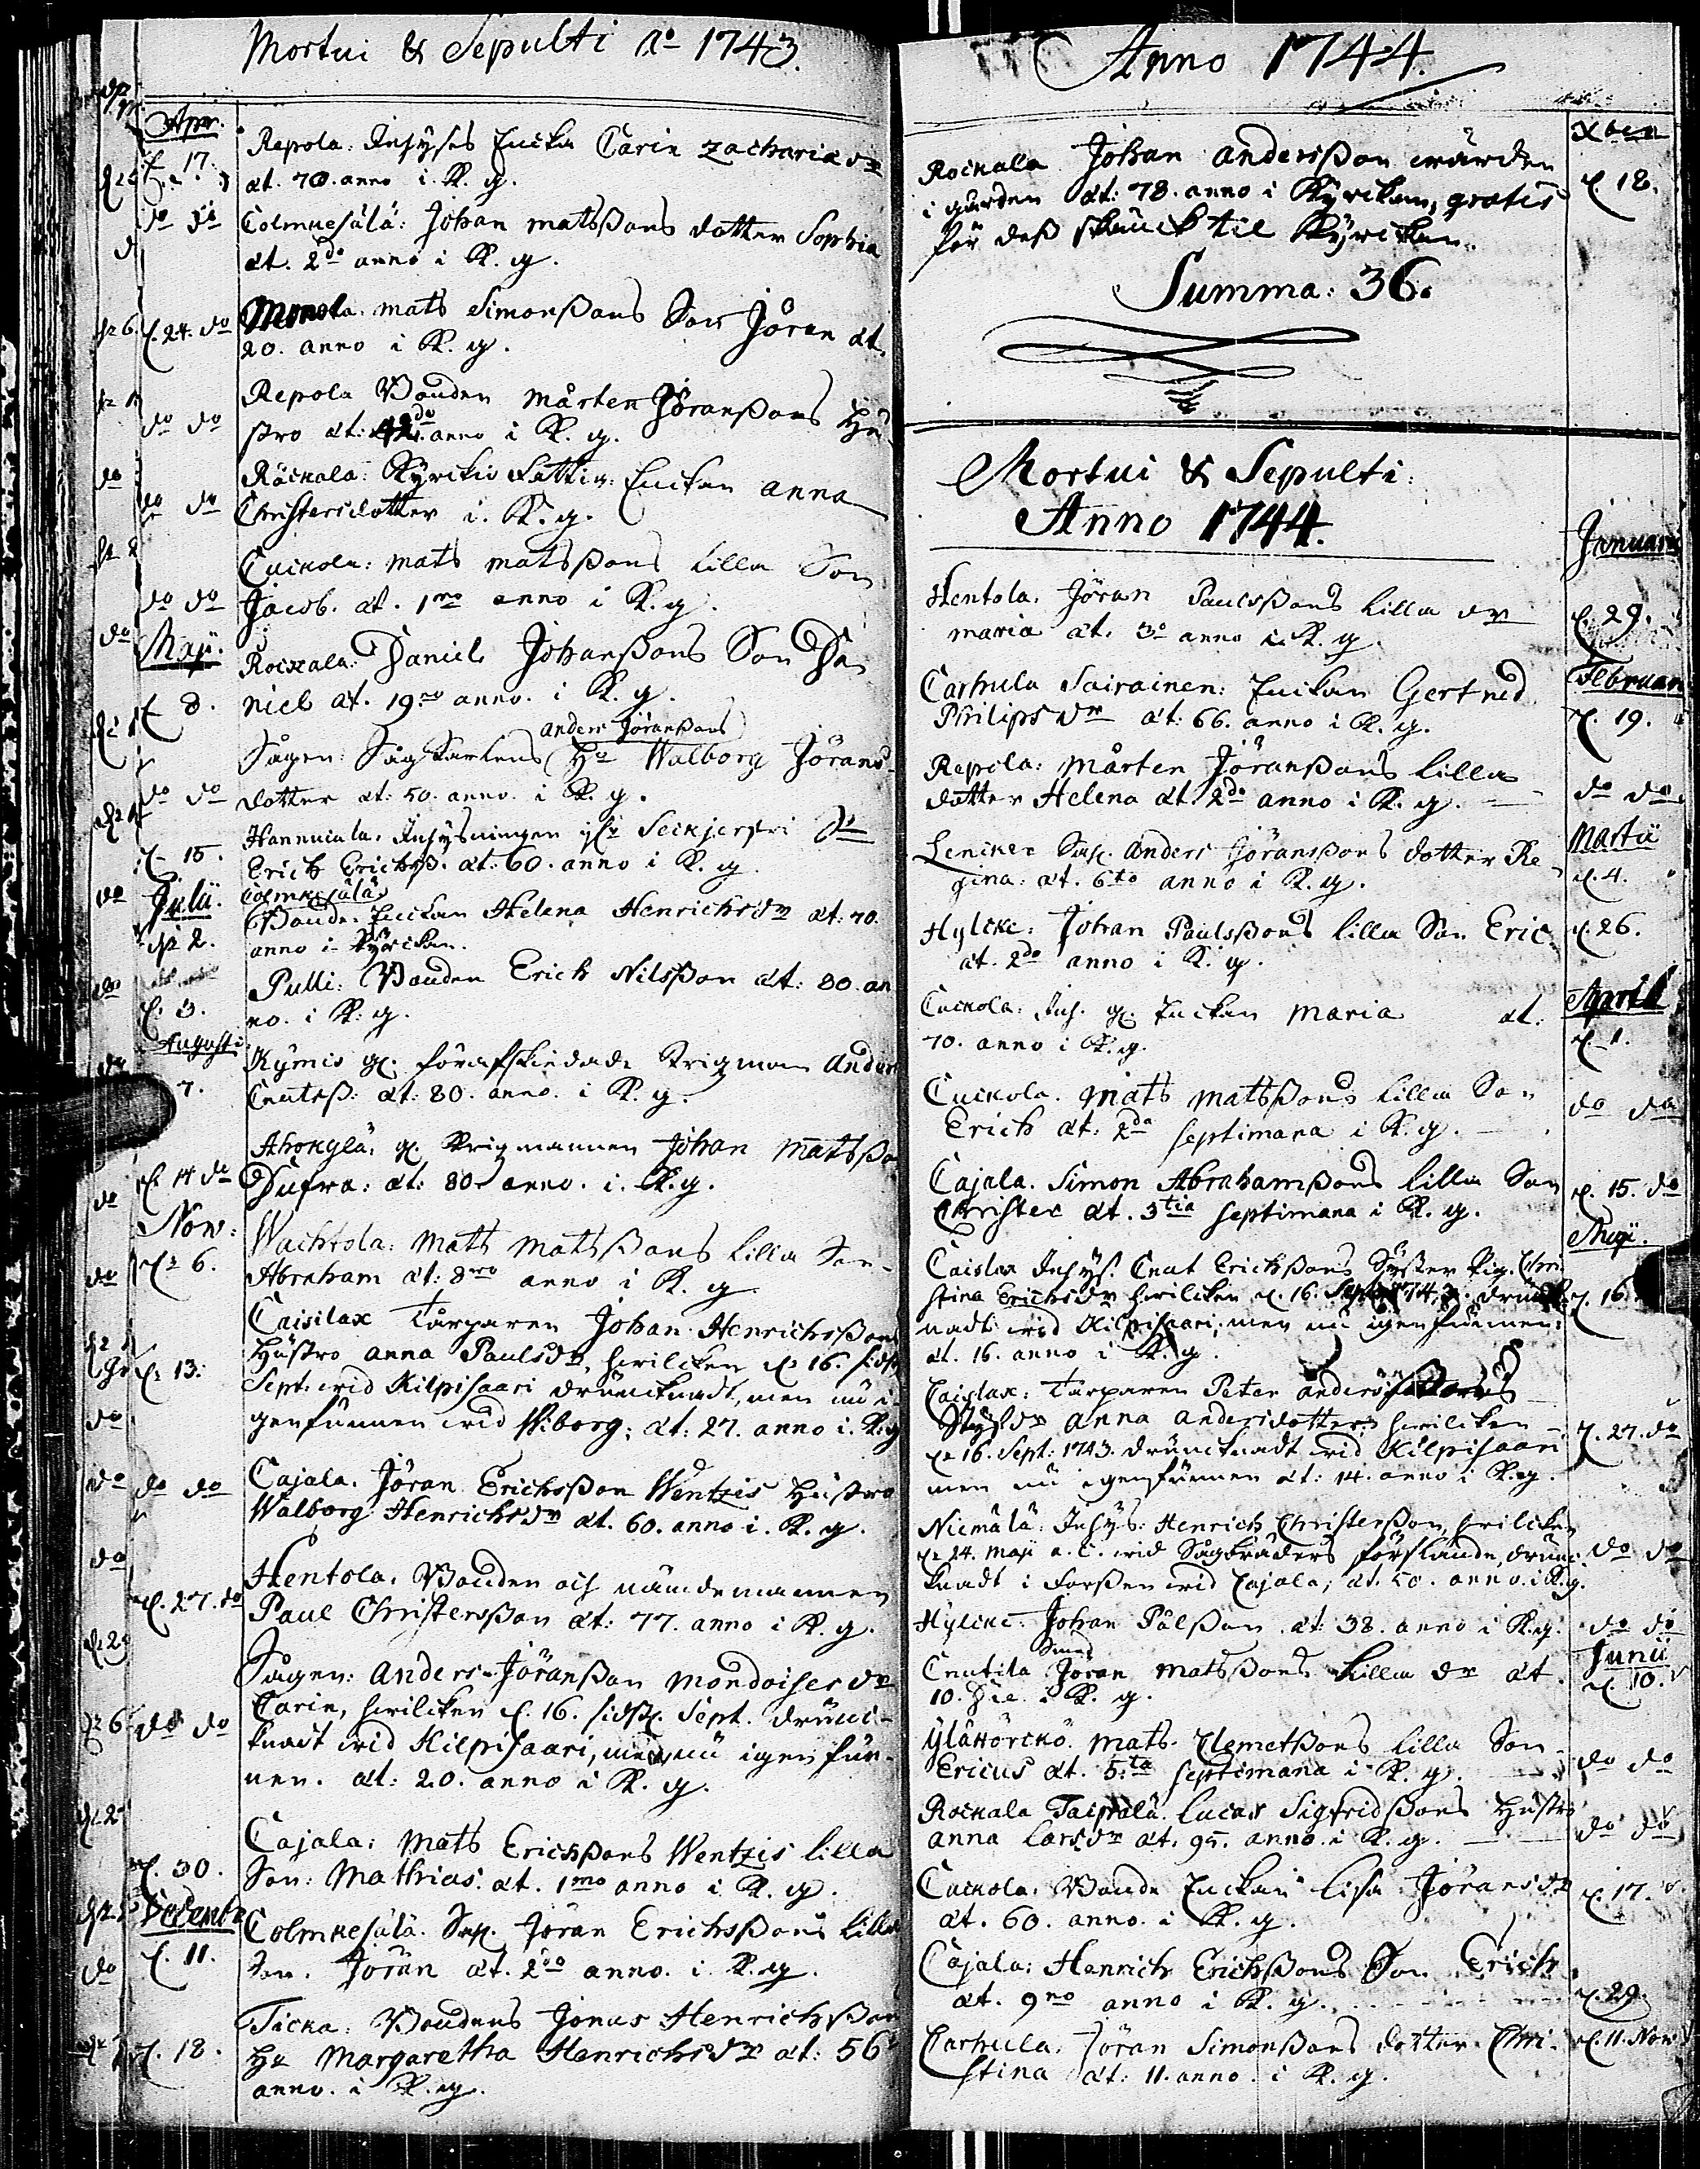 Mortui & Sepulti Ao 1743.
Apr.
d. 17. Repola: Inhyses Enckia Carin Zachariædr
æt. 70. anno i K. g.
do do Colmuesälä: Johan Matsßons dotter Sophia
æt. 2do anno i K. g.
d. 24. do Mats Simonßons Son Jöran æt.
20. anno i K. g.
do do Repola Bonden Mårten Jöranßons Hu-
stro æt: anno i K. g.
do do Räckala: Kyrckio Fattig: Enckan Anna
Christersdotter i. K. g.
do do Cuckola: Mats Matsßons lilla Son
Jacob. æt. 1mo anno i K. g.
Maji.
d. 8. Rockala: Daniel Johanßons Son Da-
niel æt. 19no anno. i K. g.
Anders Jöranßons
do do Sågen: Sågkarlens Hu Walborg Jörans-
dotter æt: 50. anno. i K. g.
d. 15. Hannucala. Inhysningen
Erich Erichsß. æt: 60. anno i K. g.
Julii.
Colmuesälä
d. 2. Bonde Enckan Helena Henrichsdr æt. 70.
anno i Kyrckan.
d. 3. Pulli: Bonden Erich Nilsßon æt: 80. an
no. i K. g.
Augusti
7. Kymis gl. förafskiedade Krigman Anders
Cnutsß: æt: 80. anno. i K. g.
d. 14 do Ahokylä, gl. Krigmannen Johan Matsßon
æt: 80 anno. i. K. g.
Nov:
d. 6. Wachtola: Mats Matsßons lilla Son
Abraham æt: 8vo anno i K. g.
d. 13. Caisilax Torparen Johan Henrichsßons
Hustro Anna Paulsdr, hvilcken d. 16. sidstl.
Sept. wid Kilpisaari drunknadt, men nu i-
genfunnen wid Wiborg: æt: 27. anno i. K. g
do do Cajala. Jöran Erichsßon Wentzis Hustro
Walborg Henrichsdr æt. 60. anno i. K. g.
d. 27. do Hentola. Bonden och nämdemannen
Paul Christersßon æt: 77. anno i K. g.
do do Sågen: Anders Jöranßon Mondoises dr
Carin, hvilcken d. 16. sidstl. Sept. drunc-
knadt wid Kilpisaari, men nu igenfun-
nen. æt: 20. anno i K. g.
d. 30. Cajala: Mats Erichsßons Wentzis lilla
Son: Mathias. æt. 1mo anno i K. g.
Decembr
d. 11. Colmuesälä. Jöran Erichsßons lilla
Son. Jöran æt. 2do anno. i K. g.
d. 18. Ticka: Bondens Jonas Henrichsßon
Hu Margaretha Henrichsdr æt: 56
anno. i K. g.
Anno 1744.
Xbem
Rockala Johan Andersßon Wärden
i gården æt: 78. anno i Kyrckan, gratis d. 18.
för deß skänck til Kyrckan.
Summa: 36.
Mortui & Sepulti:
Anno 1744.
Januarii
Hentola. Jöran Paulsßons lilla dr d. 29.
Maria æt. 3o anno i K. g.
Februar
Carhula Sairainen: Enckan Gertrud
Philipsdr æt: 66. anno i K. g. d. 19.
Repola: Mårten Jöranßons lilla
dotter Helena æt. 2do anno i K. g. do do
Martii
Anders Jöransßons dotter Re-
gina: æt. 6to anno i K. g. d. 4.
Hylcke: Johan Paulsßons lilla Son Eric d. 26.
æt. 2do anno i K. g.
April
Cuckola: Inh. gl. Enckan Maria æt.
70. anno i K. g. d. 1.
Cuckola. Mats Matsßons lilla Son do do
Erich æt: 2da septimana i K. g.
Cajala. Simon Abrahamßons lilla Son d. 15. do
Christer æt. 3tia septimana i K. g.
Maji.
Caislax Inhys. Cnut Erichßons Syster Pig. Chri-
stina Erichsdr hvilcken d. 16. Sept 1743. drunck- d. 16.
nadt wid Kilpisaari, men nu igenfunnen:
æt. 16. anno i K. g.
Caislax: Torparen Peter
Anna Andersdotter hvilcken
d. 16. Sept: 1743. druncknadt wid Kilpisaari d. 27. do
men nu igenfunnen æt: 14. anno i K. g.
Niemälä: Inhys: Henrich Christerßon, hvilcken
d. 24. Maji a. c. wid Sågbräders förslände, drunc- do do
knadt i Forßen wid Cajala; æt. 50. anno. i K. g.
Hylcke. Johan Pålßon æt: 38. anno i K. g. do do
Junii
Cnutila Jöran Matsßons lilla dr æt. d. 10.
10. Die. i K. g.
Yläkörckö. Mats Clemetßons lilla Son
Ericus æt. 5:ta septimana i K. g. do do
Rockala Taipala Lucas Sigfridßons Hustro
Anna Larsdr æt. 95. anno. i K. g. do do
Cuckola: Bonde Enckan Lisa Jöransdr d. 17.
æt. 60. anno. i K. g.
Cajala: Henrich Erichßons Son Erich
æt. 9no anno i K. g. d. 29.
Carhula: Jöran Simonßons dotter Chri- d. 11. Nov
stina æt: 11. anno. i K. g.